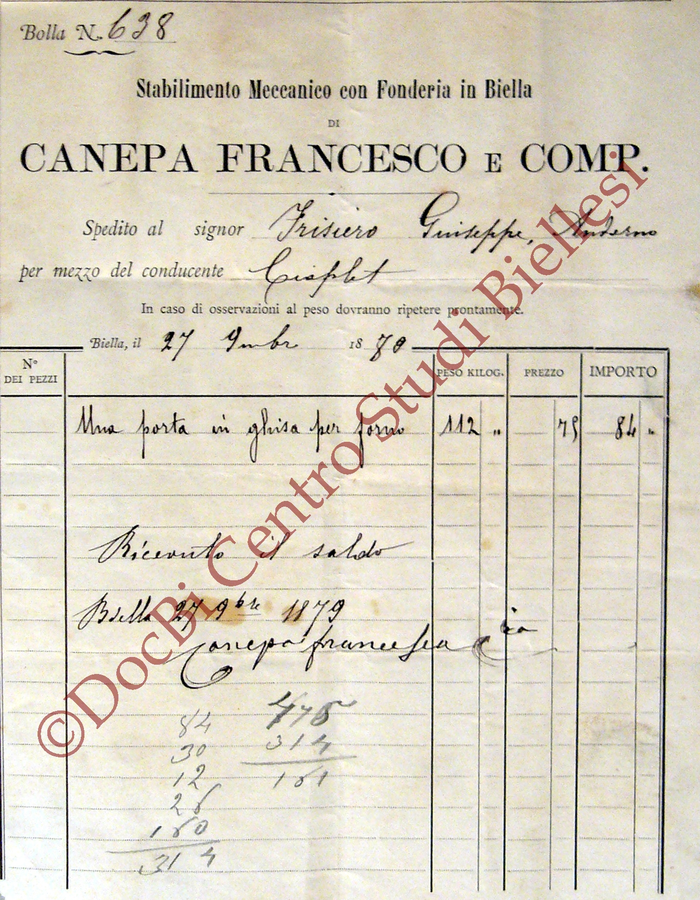 Bolla N. 638
Stabilimento Meccanico con Fonderia in Biella
DI
CANEPA FRANCESCO E COMP.
Spedito al signor Frisiero Giuseppe, Anderno
per mezzo del conducente
In caso di osservazioni al peso dovranno ripetere prontamente.
Biella, il 27 9mbr 1879
N° DEI PEZZI PESO KILOG. PREZZO IMPORTO
Una porta in ghisa per forno 112 " 75 84 "
Ricevuto il saldo
Biella 27 9bre 1879
Canepa francesco
84 475
30 314
12 161
26
160
314
©DocBi Centro Studi Biellesi